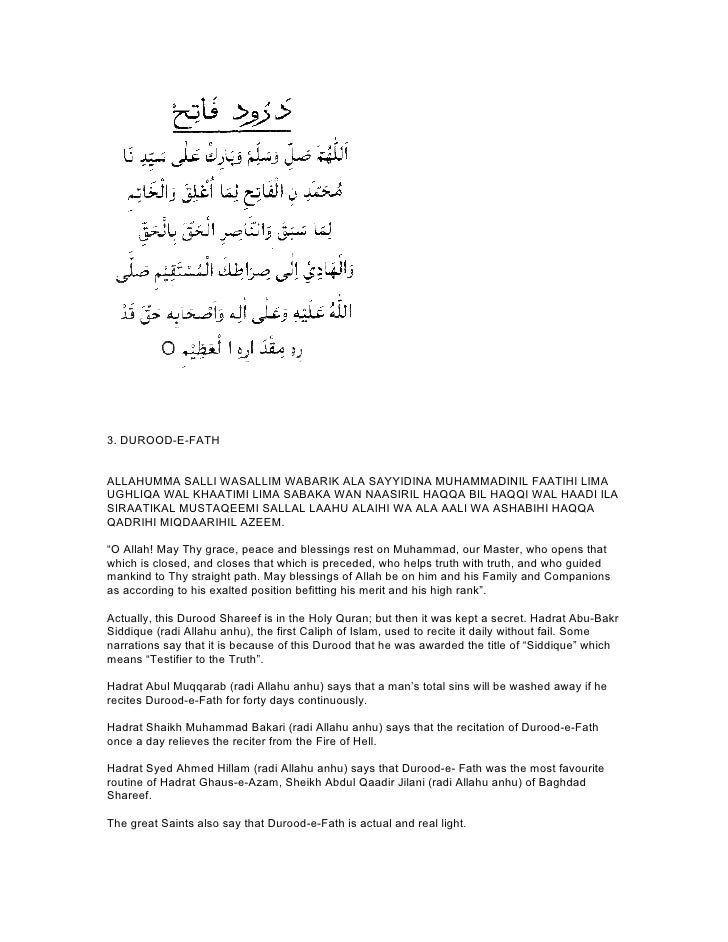 دَرُود فَاتِحْ
اَللّٰهُمَّ صَلِّ وَسَلِّمْ وَبَارِكْ عَلٰى سَيِّدِ نَا
مُحَمَّدِ نِ الْفَاتِحِ لِمَا اُغْلِقَ وَالْخَاتِمِ
لِمَا سَبَقَ وَالنَّاصِرِ الْحَقَّ بِالْحَقِّ
وَالْهَادِيْ اِلٰى صِرَاطِكَ الْمُسْتَقِيْمِ صَلَّى
اللّٰهُ عَلَيْهِ وَعَلٰى اٰلِهٖ وَاَصْحَابِهٖ حَقَّ قَدْ
رِهٖ مِقْدَ ارِهِ ا لْعَظِيْمِ O
3. DUROOD-E-FATH
ALLAHUMMA SALLI WASALLIM WABARIK ALA SAYYIDINA MUHAMMADINIL FAATIHI LIMA
UGHLIQA WAL KHAATIMI LIMA SABAKA WAN NAASIRIL HAQQA BIL HAQQI WAL HAADI ILA
SIRAATIKAL MUSTAQEEMI SALLAL LAAHU ALAIHI WA ALA AALI WA ASHABIHI HAQQA
QADRIHI MIQDAARIHIL AZEEM.
“O Allah! May Thy grace, peace and blessings rest on Muhammad, our Master, who opens that
which is closed, and closes that which is preceded, who helps truth with truth, and who guided
mankind to Thy straight path. May blessings of Allah be on him and his Family and Companions
as according to his exalted position befitting his merit and his high rank”.
Actually, this Durood Shareef is in the Holy Quran; but then it was kept a secret. Hadrat Abu-Bakr
Siddique (radi Allahu anhu), the first Caliph of Islam, used to recite it daily without fail. Some
narrations say that it is because of this Durood that he was awarded the title of “Siddique” which
means “Testifier to the Truth”.
Hadrat Abul Muqqarab (radi Allahu anhu) says that a man’s total sins will be washed away if he
recites Durood-e-Fath for forty days continuously.
Hadrat Shaikh Muhammad Bakari (radi Allahu anhu) says that the recitation of Durood-e-Fath
once a day relieves the reciter from the Fire of Hell.
Hadrat Syed Ahmed Hillam (radi Allahu anhu) says that Durood-e- Fath was the most favourite
routine of Hadrat Ghaus-e-Azam, Sheikh Abdul Qaadir Jilani (radi Allahu anhu) of Baghdad
Shareef.
The great Saints also say that Durood-e-Fath is actual and real light.